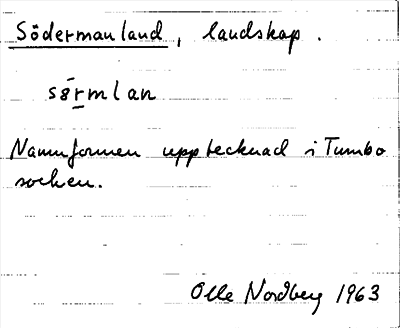 Södermanland, landskap.
sørmlan
Namnformen upptecknad i Tumbo
socken.
Olle Nordberg 1963